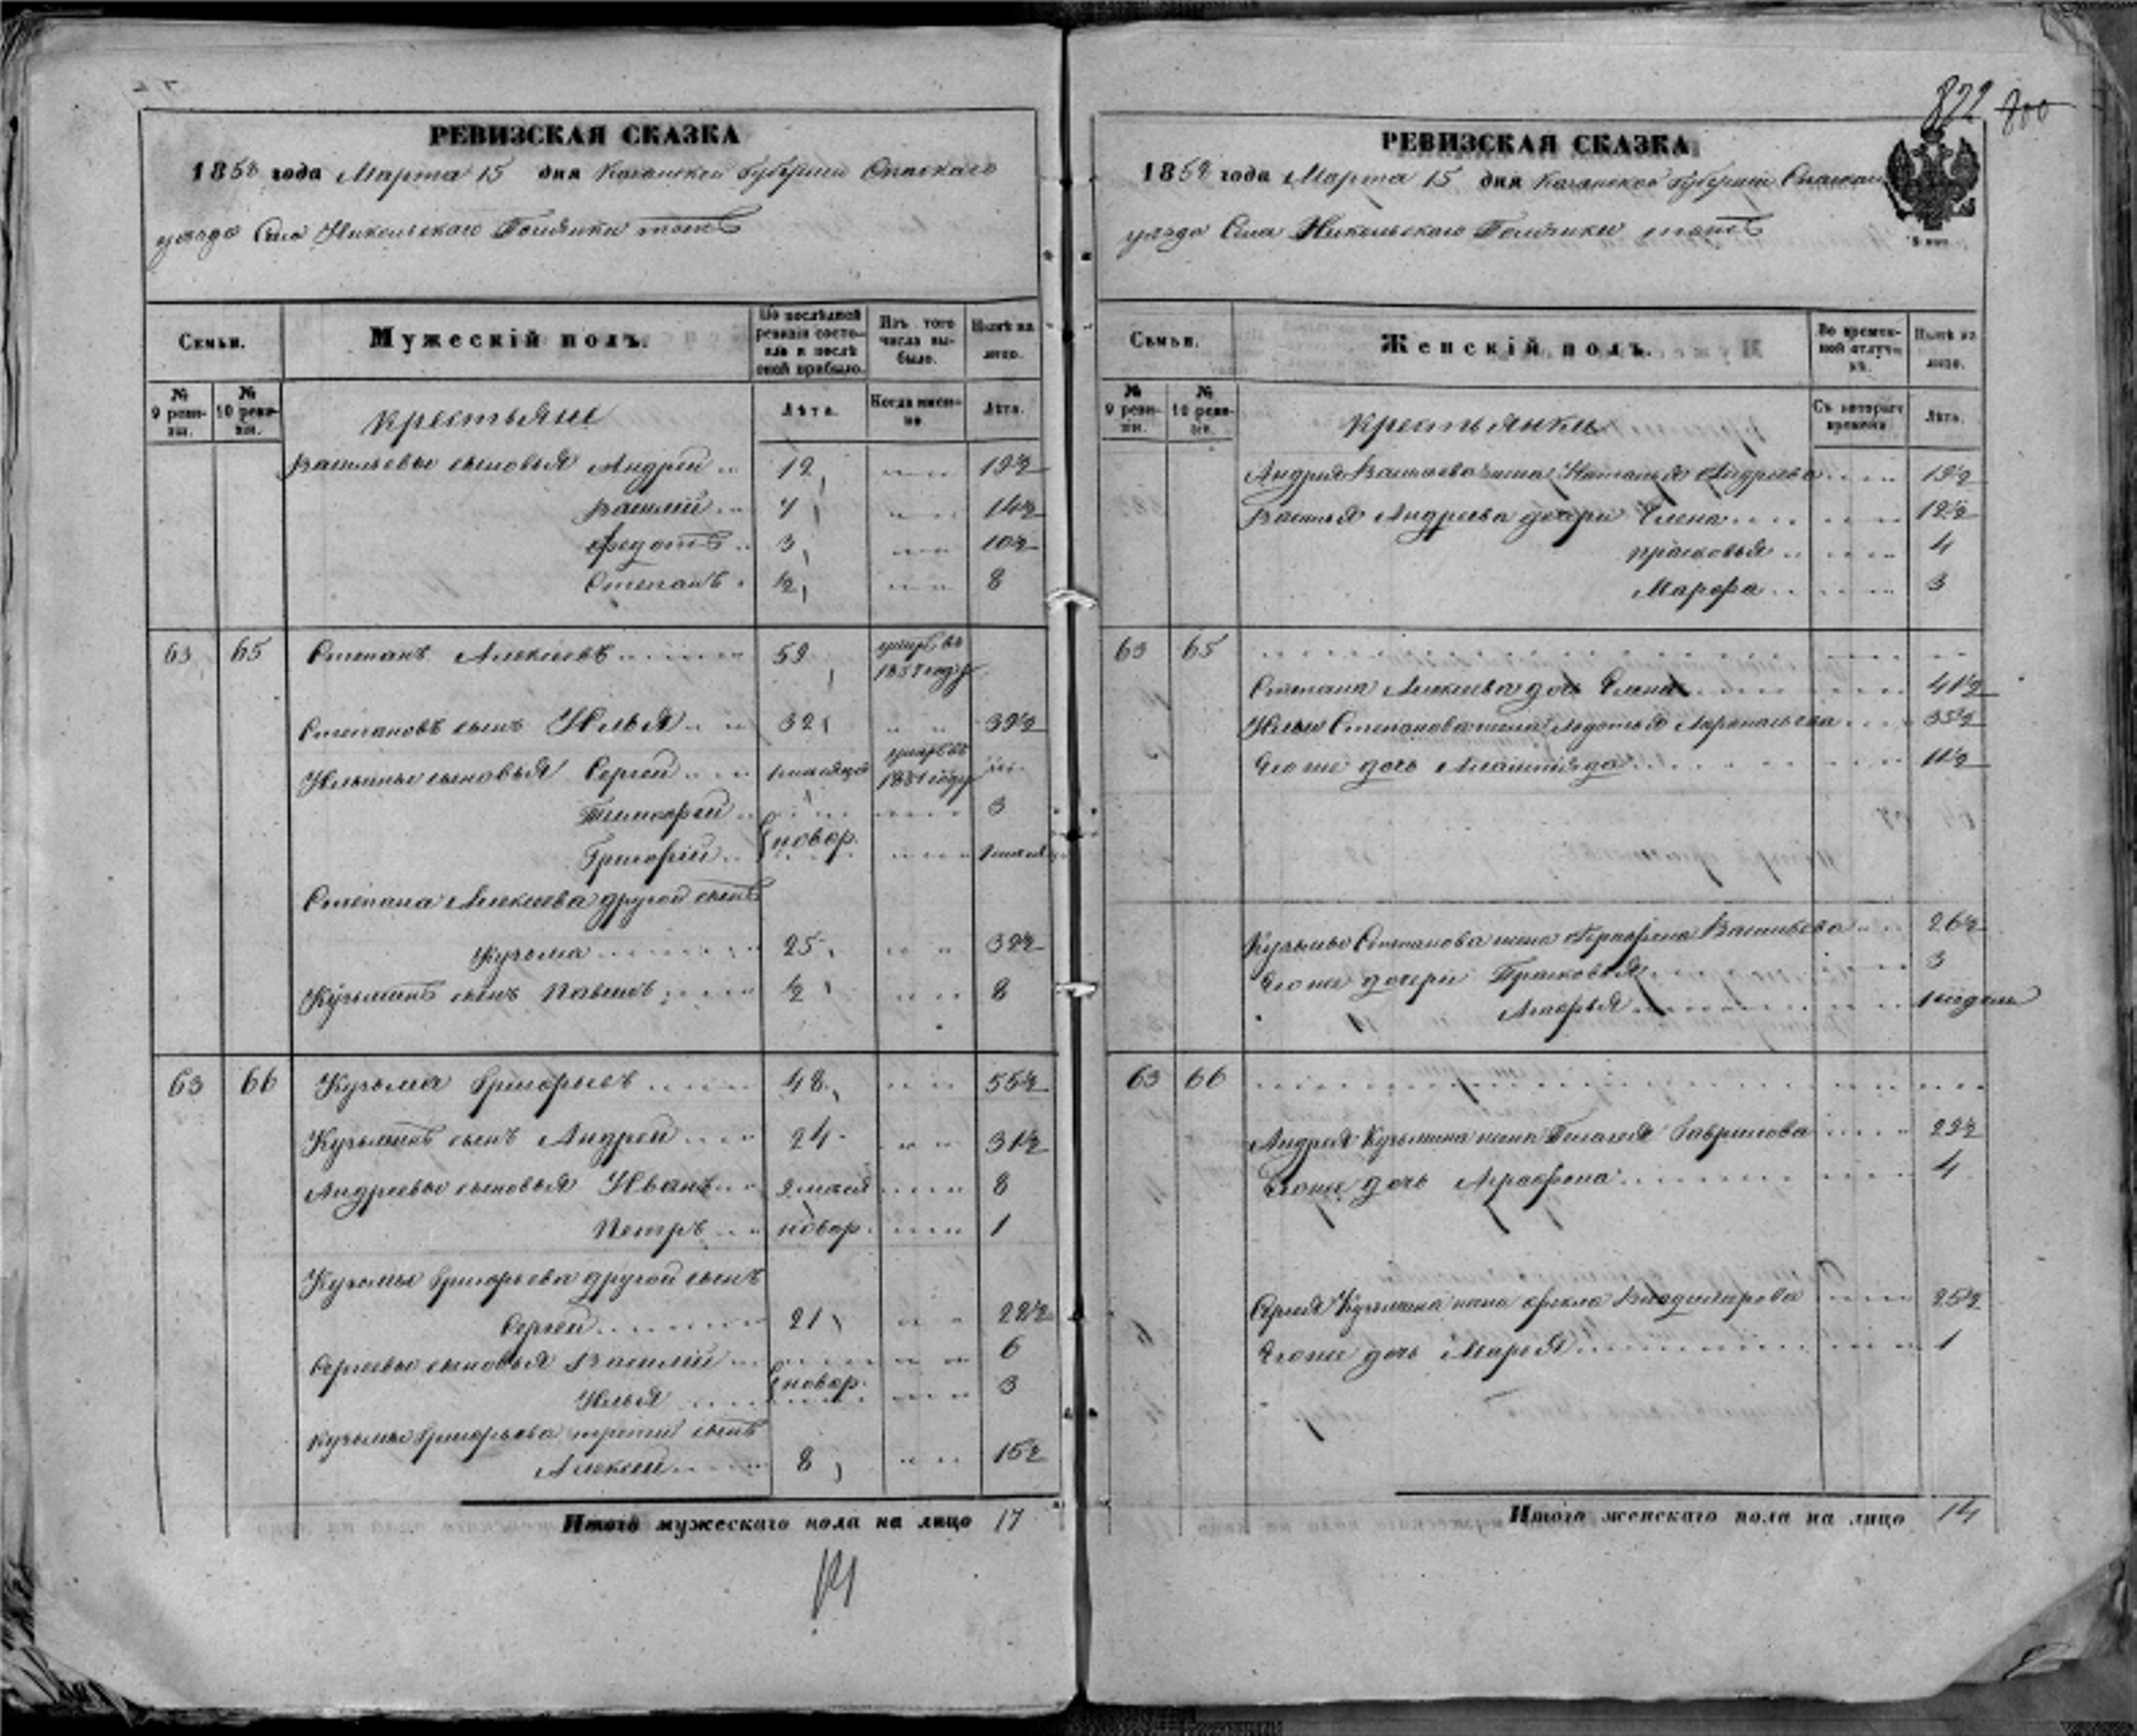 822 800
РЕВИЗСКАЯ СКАЗКА
1858 года Марта 15 дня Казанской Губернiи Спаскаго
уѣзда Села Никольскаго тожъ
Семьи.
Мужескiй полъ.
По послѣдней ревизiи состояло и послѣ оной прибыло.
Изъ того числа выбыло.
Нынѣ на лицо.
№ 9 ревизiи.
№ 10 ревизiи.
Крестьяне
Лѣта.
Когда именно
Лѣта.
Васильевы сыновья Андрей 12 19½
Василiй 7 14½
Федотъ 3 10½
Степанъ ½ 8
63 65 Степанъ Алексѣевъ 59 умеръ въ 1857 году
Степановъ сынъ Илья 32 39½
Ильины сыновья Сергей умеръ въ 1851 году
Тимофей 3
новор.
Григорiй
Степана Алексѣева другой сынъ
Кузьма 25 32½
Кузьминъ сынъ Павелъ ½ 8
63 66 Кузьма Григорьевъ 48 55½
Кузьминъ сынъ Андрей 24 31½
Андреевы сыновья Иванъ 8
Петръ новор. 1
Кузьмы Григорьева другой сынъ
Сергей 21 28½
Сергеевы сыновья Василiй 6
новор.
Илья 3
Кузьмы Григорьева третiй сынъ
Алексей 8 15½
Итого мужескаго пола на лицо 17
РЕВИЗСКАЯ СКАЗКА
1858 года Марта 15 дня Казанской Губернiи
уѣзда Села Никольскаго тожъ
Семьи.
Женскiй полъ.
Во временной отлучкѣ.
Нынѣ на лицо.
№ 9 ревизiи.
№ 10 ревизiи.
Крестьянки
Съ котораго времени.
Лѣта.
Андрея Васильева жена Наталья Андреева 19½
Василья Андреева дочери Елена 12½
Прасковья 4
Марфа 3
63 65
Степана Алексѣева дочь Елена 41½
Ильи Степанова жена Авдотья 35½
Его же дочь 11½
Кузьмы Степанова жена Аграфена Васильева 26½
Его же дочери Прасковья 3
1 недели
63 66
Андрея Кузьмина жена Пелагея Гаврилова 29½
Его же дочь Аграфена 4
Сергея Кузьмина жена Фекла 25½
Его же дочь Марья 1
Итого женскаго пола на лицо 14